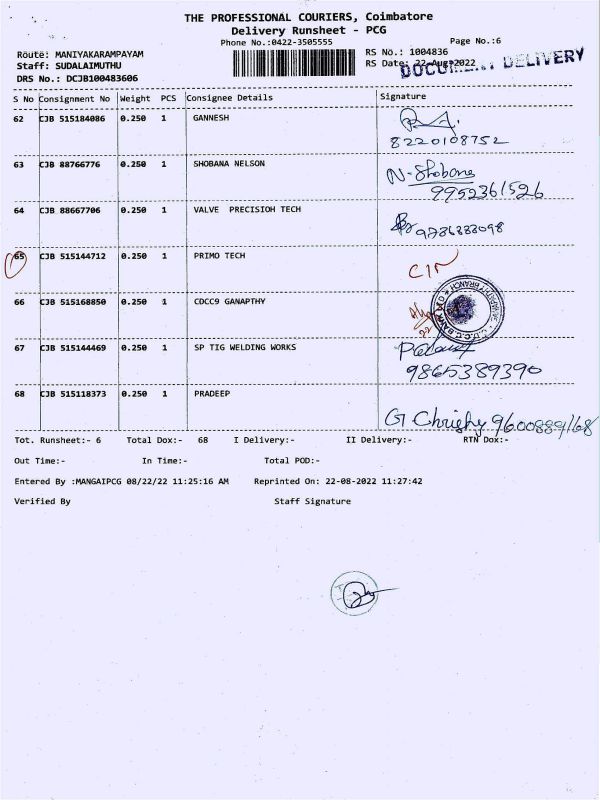 THE PROFESSIONAL COURIERS, Coimbatore
Delivery Runsheet - PCG
Phone No.:0422-3505555 Page No.:6
Route: MANIYAKARAMPAYAM RS No.: 1004836
Staff: SUDALAIMUTHU RS Date: 22-Aug-2022
DOCUMENT DELIVERY
DRS No.: DCJB100483606
S No Consignment No Weight PCS Consignee Details Signature
62 CJB 515184086 0.250 1 GANNESH
8220108752
63 CJB 88766776 0.250 1 SHOBANA NELSON N-Shobana
9952361526
64 CJB 88667706 0.250 1 VALVE PRECISIOH TECH
65 CJB 515144712 0.250 1 PRIMO TECH
66 CJB 515168850 0.250 1 CDCC9 GANAPTHY
67 CJB 515144469 0.250 1 SP TIG WELDING WORKS
9865389390
68 CJB 515118373 0.250 1 PRADEEP
Tot. Runsheet:- 6 Total Dox:- 68 I Delivery:- II Delivery:- RTN Dox:-
Out Time:- In Time:- Total POD:-
Entered By :MANGAIPCG 08/22/22 11:25:16 AM Reprinted On: 22-08-2022 11:27:42
Verified By Staff Signature